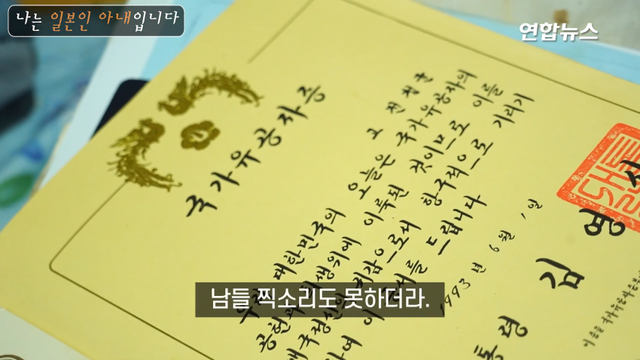 나는 일본인 아내입니다
연합뉴스
국가유공자증
고 전
우리 대한민국의 오늘은 국가유공자의
공헌과 희생위에 이룩된 것이므로 이를
애국정신의 귀감으로서 항구적으로 기리기
위하여 이 증서를 드립니다
1993년 6월 1일
대통령 김 영 삼
남들 찍소리도 못하더라.